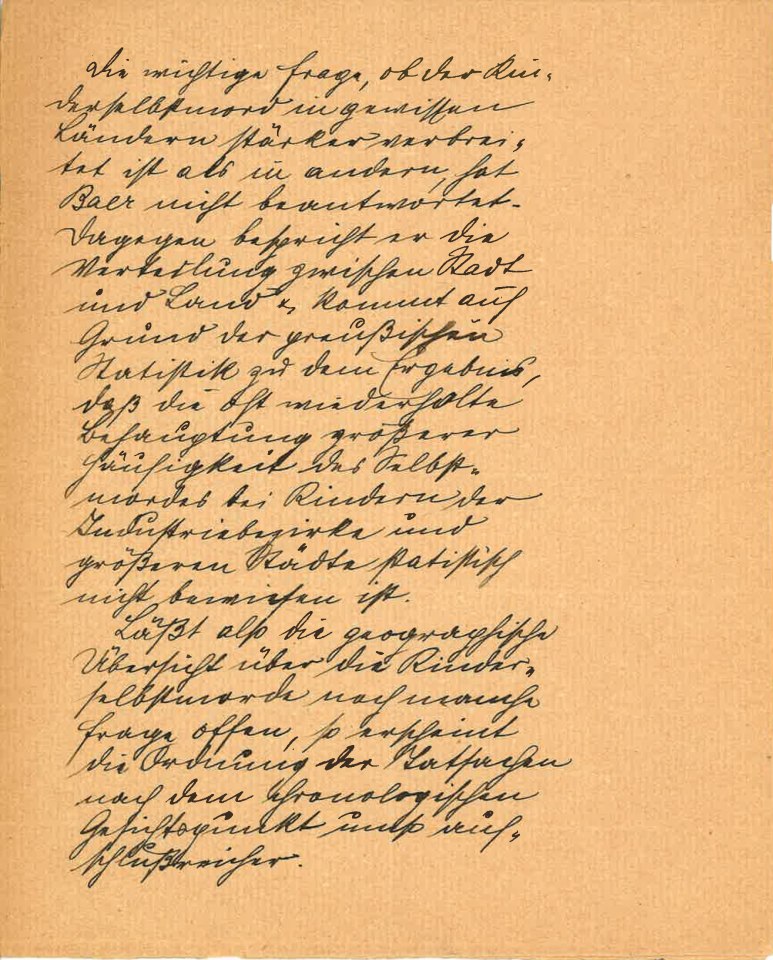 Die wichtige Frage, ob der Kin-
derselbstmord in gewissen
Ländern stärker verbrei-
tet ist als in andern, hat
Baer nicht beantwortet.
Dagegen bespricht er die
Verteilung zwischen Stadt
und Land & kommt auf
Grund der preußischen
Statistik zu dem Ergebnis,
daß die oft wiederholte
Behauptung größerer
Häufigkeit des Selbst-
mordes bei Kindern der
Industriebezirke und
größeren Städte statistisch
nicht bewiesen ist.
Läßt also die geographische
Übersicht über die Kinder-
selbstmorde noch manche
Frage offen, so erscheint
die Ordnung der Tatsachen
nach dem chronologischen
Gesichtspunkt umso auf-
schlußreicher.